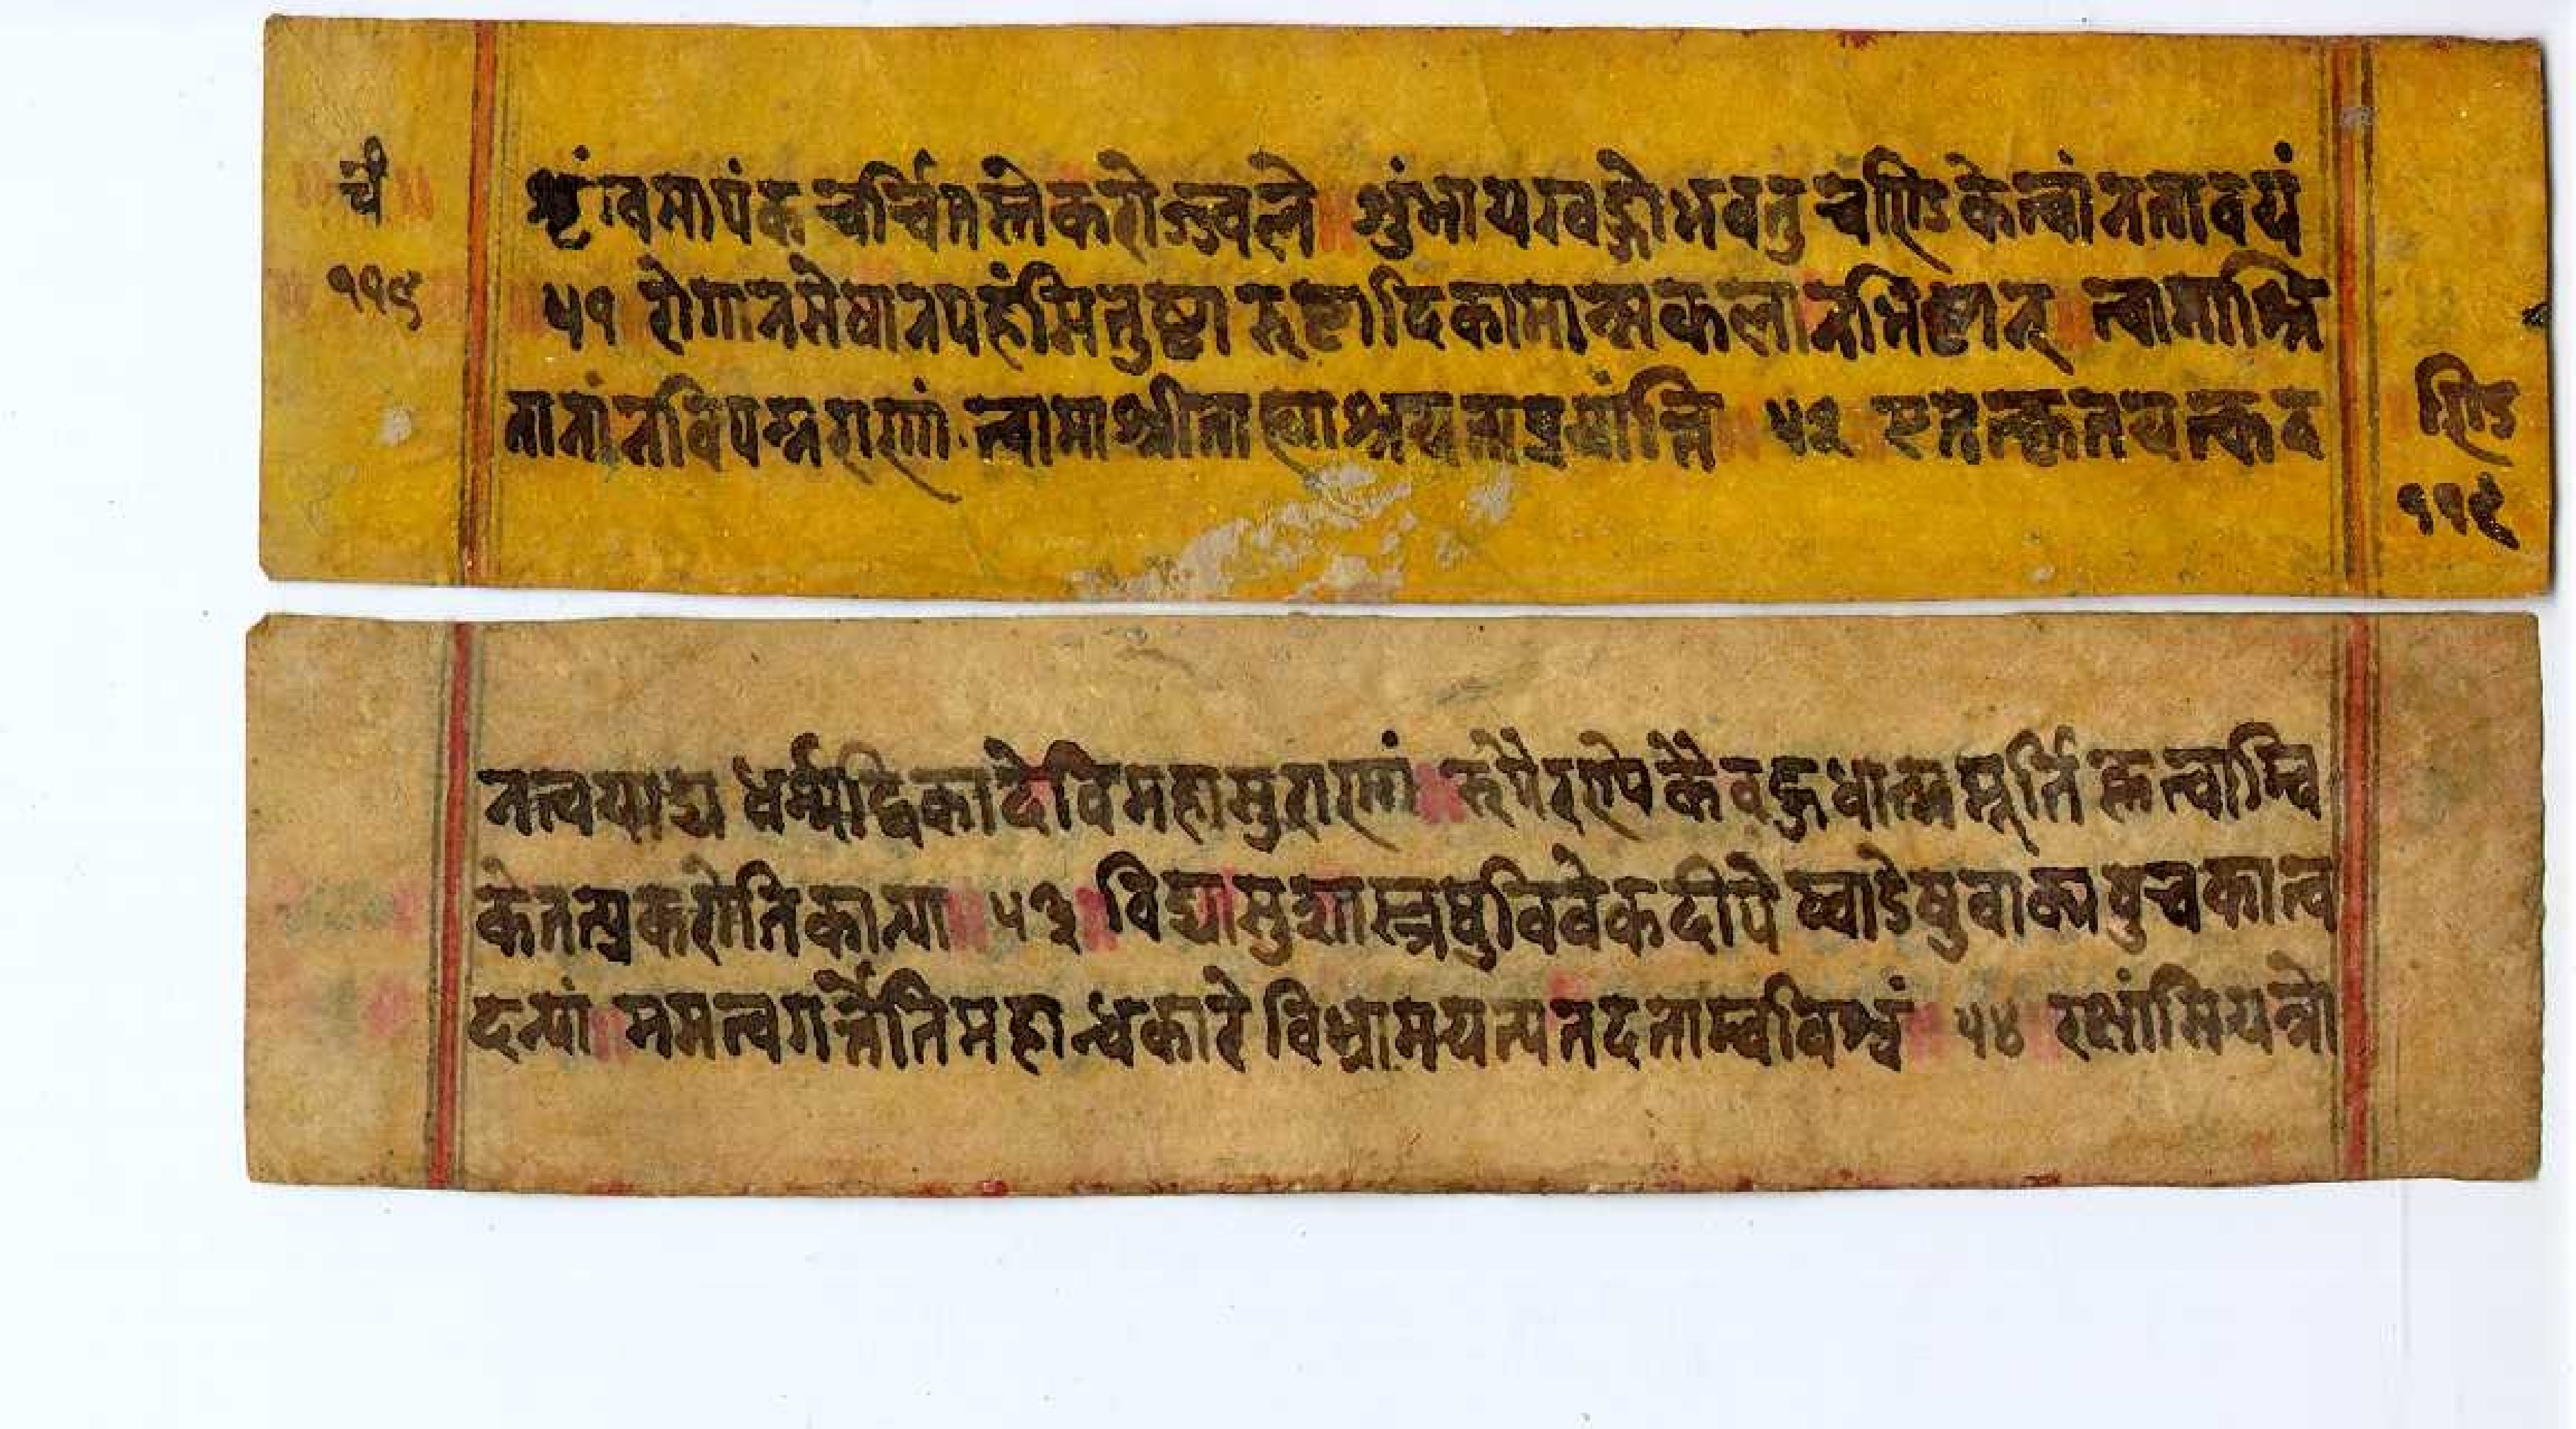 चं
११९
सृग्वसापंकचर्चितस्तेकरोज्ज्वले शुंभायखड्गोभवतुचण्डिकेत्वांनतावयं
५१ रोगानसेषानपहंसितुष्टा रुष्टादिकामान्सकलानभिष्टान् त्वामाश्रि
तानांनविपन्नराणां त्वामाश्रीताह्याश्रयतांप्रयान्ति ५२ एतत्कृतंयत्कद
ण्डि
११९
नत्वयाद्य धर्मद्विषांदेविमहासुराणां रूपैरणेकैवहुधात्ममूर्तिं कृत्वाम्वि
केतत्प्रकरोतिकान्या ५३ विद्यासुशास्त्रषुविवेकदीपे ष्वाद्येषुवाक्यषुचकात्व
दन्या ममत्वगर्त्तेतिमहान्धकारे विभ्रामयत्यतदताम्वविश्वं ५४ रक्षांसियत्रो